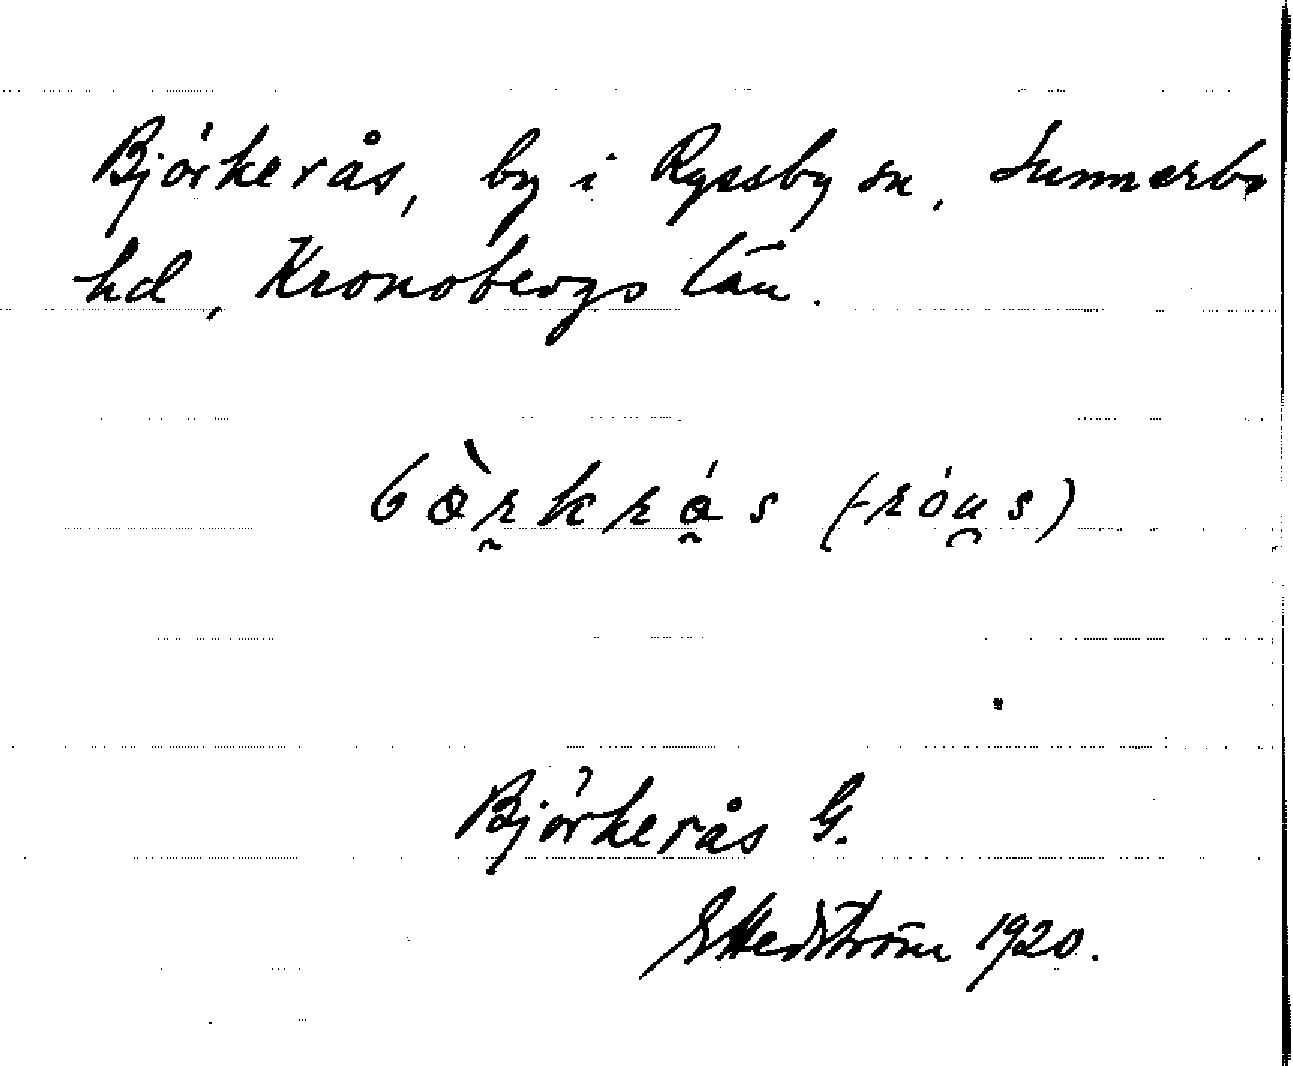 Björkerås, by i Ryssby sn, Sunnerbo
hd, Kronobergs län.
bø̀rkrás (-róus)
Björkerås G.
G Hedström 1920.